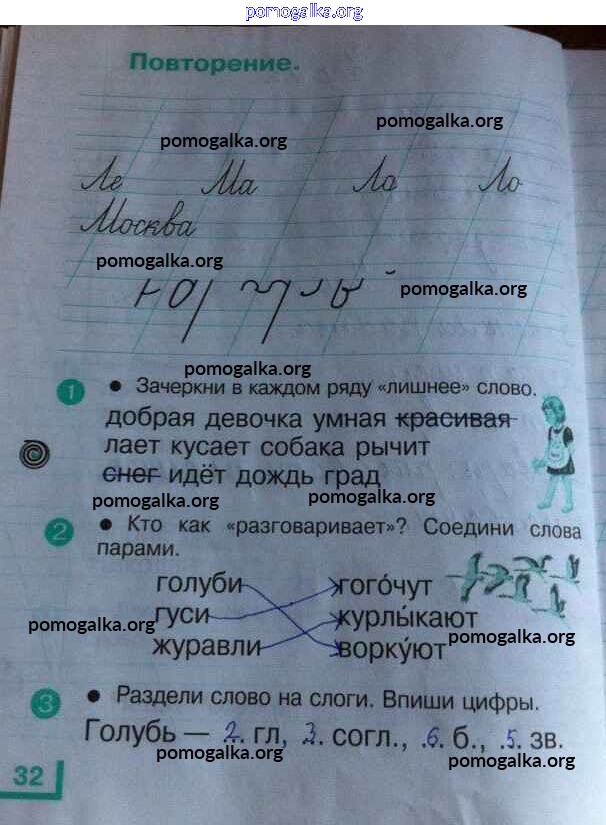 pomogalka.org
Повторение.
pomogalka.org
pomogalka.org
Ле Ма Ла Ло
Москва
pomogalka.org
pomogalka.org
pomogalka.org
1 • Зачеркни в каждом ряду «лишнее» слово.
добрая девочка умная красивая
лает кусает собака рычит
снег идёт дождь град
pomogalka.org
pomogalka.org
2 • Кто как «разговаривает»? Соедини слова
парами.
голуби гого́чут
гуси курлы́кают
журавли ворку́ют
pomogalka.org
pomogalka.org
3 • Раздели слово на слоги. Впиши цифры.
Голубь — 2. гл, 3. согл., 6. б., 5. зв.
pomogalka.org
pomogalka.org
32